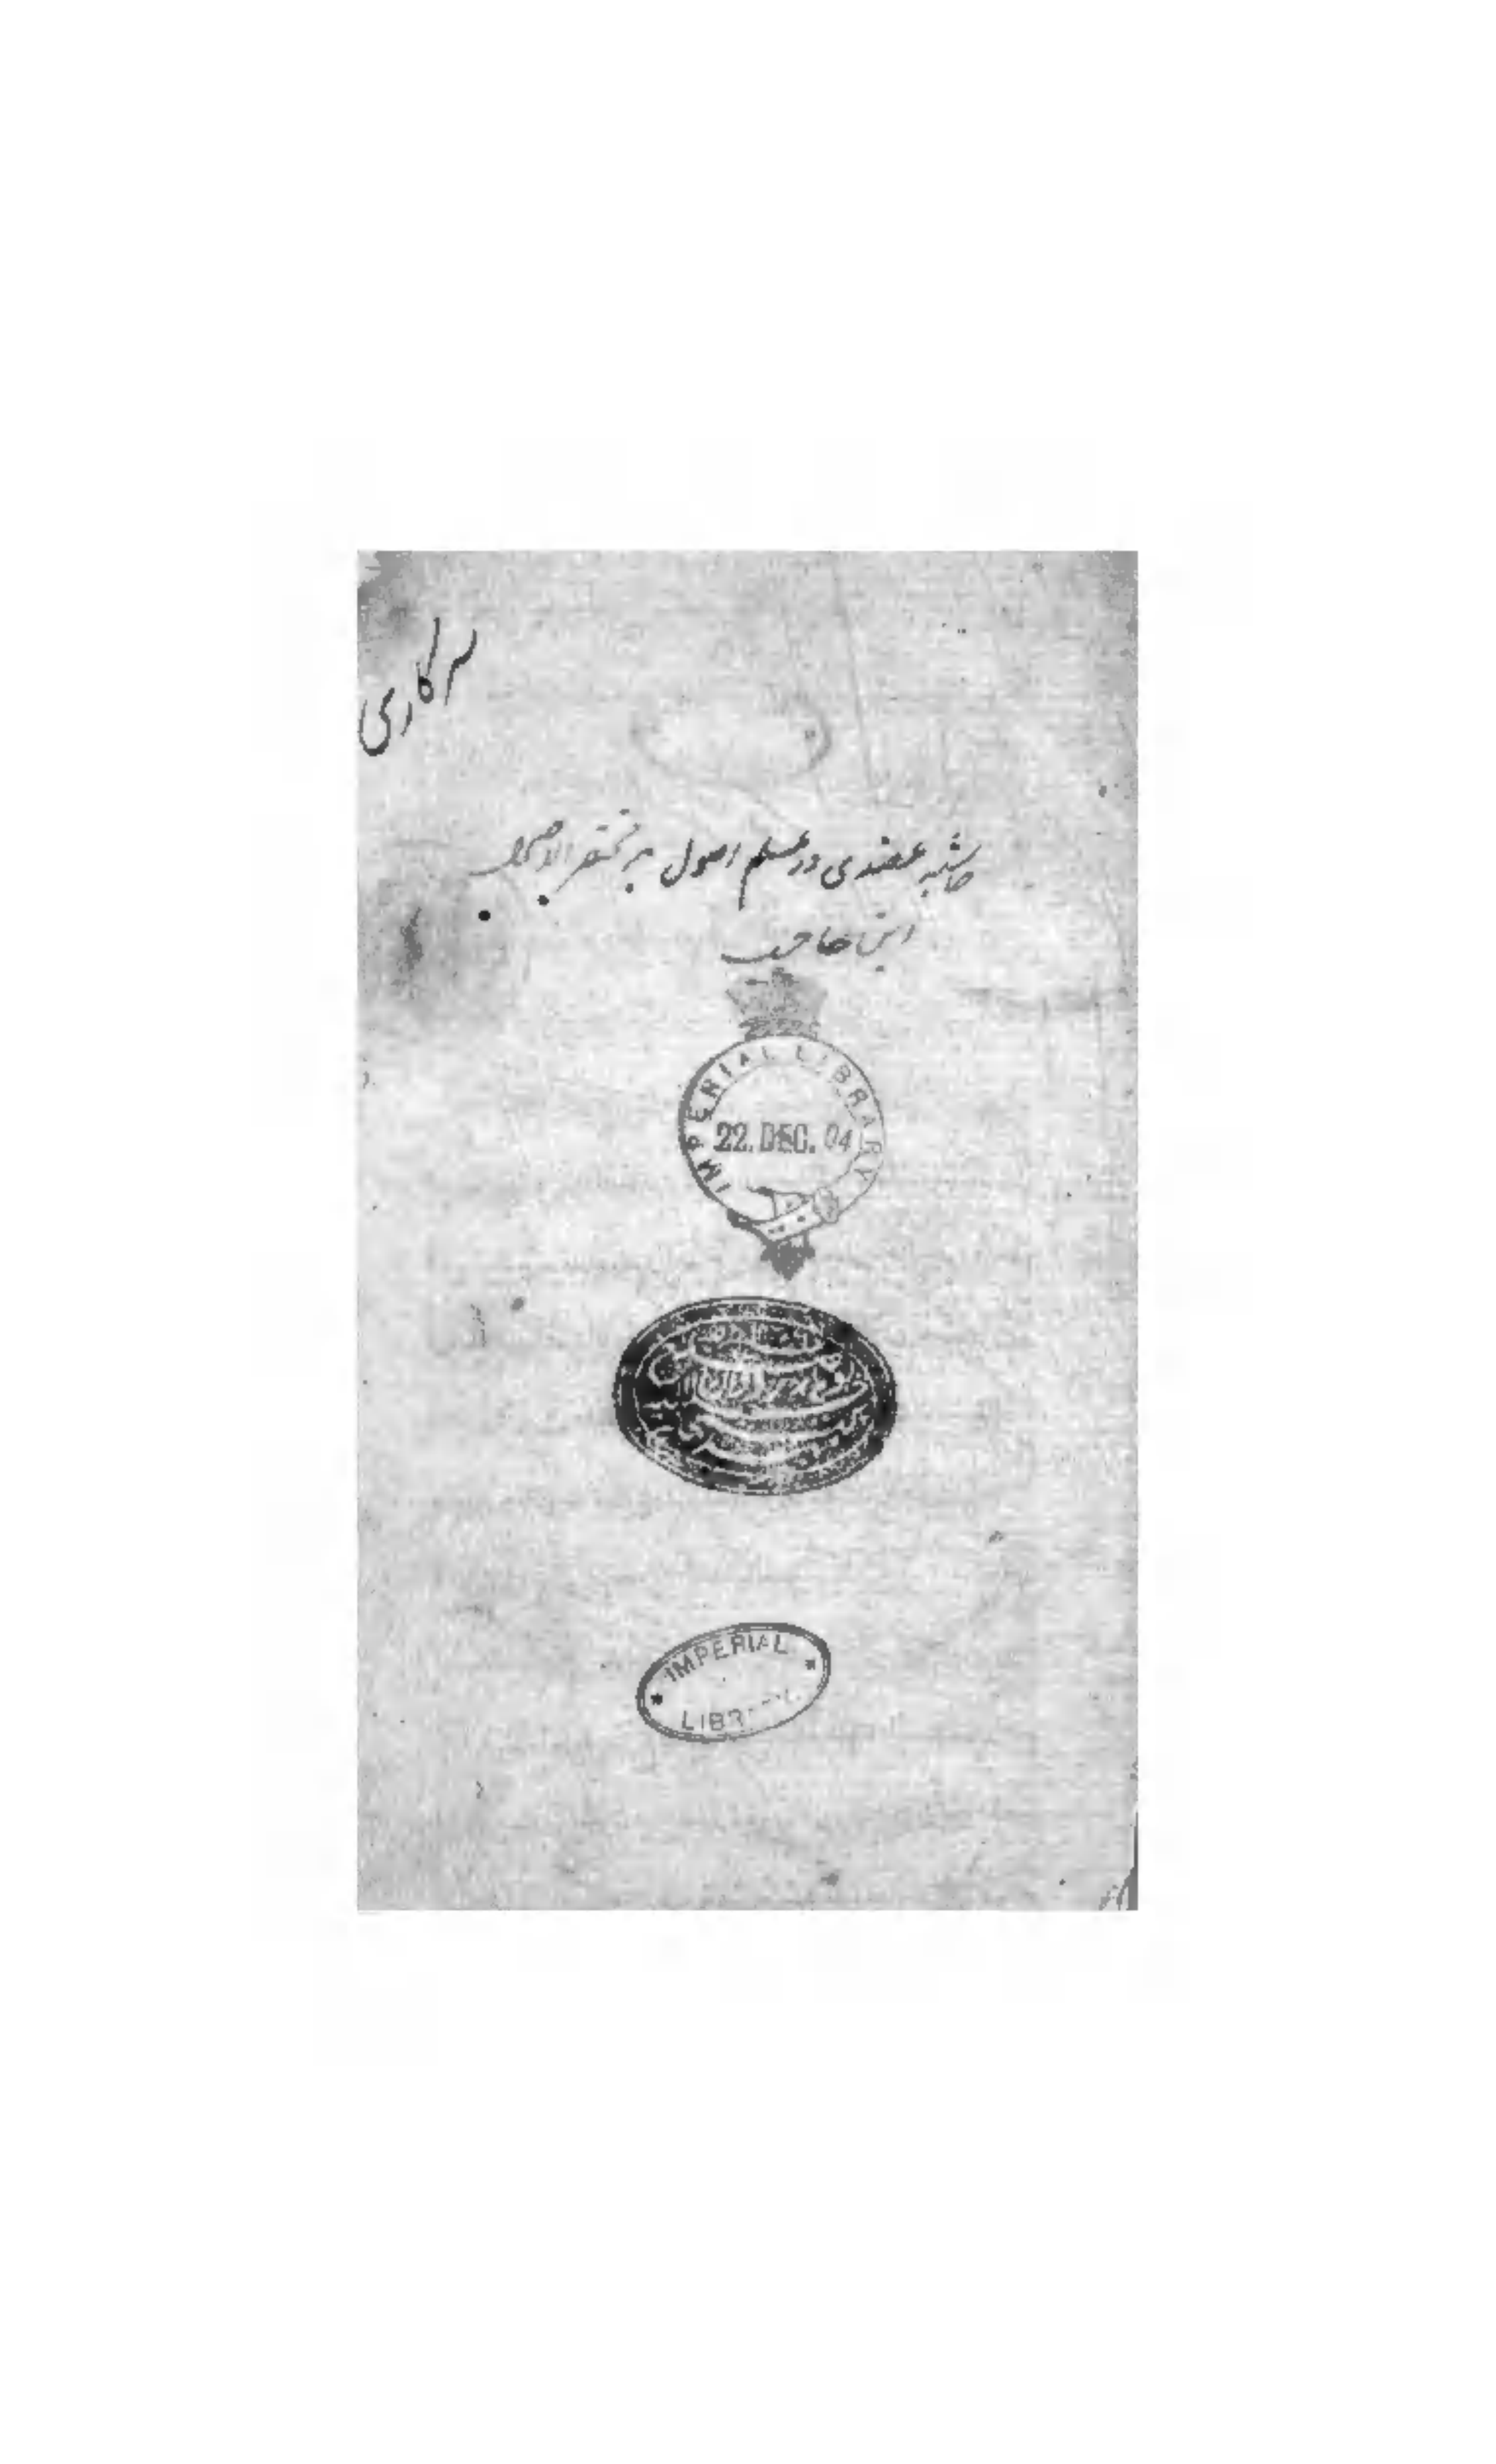 سرکاری
حاشیه عضدی در علم اصول بر مختصر الاصول
ابن حاجب
IMPERIAL LIBRARY
22. DEC. 04
IMPERIAL
LIBRARY